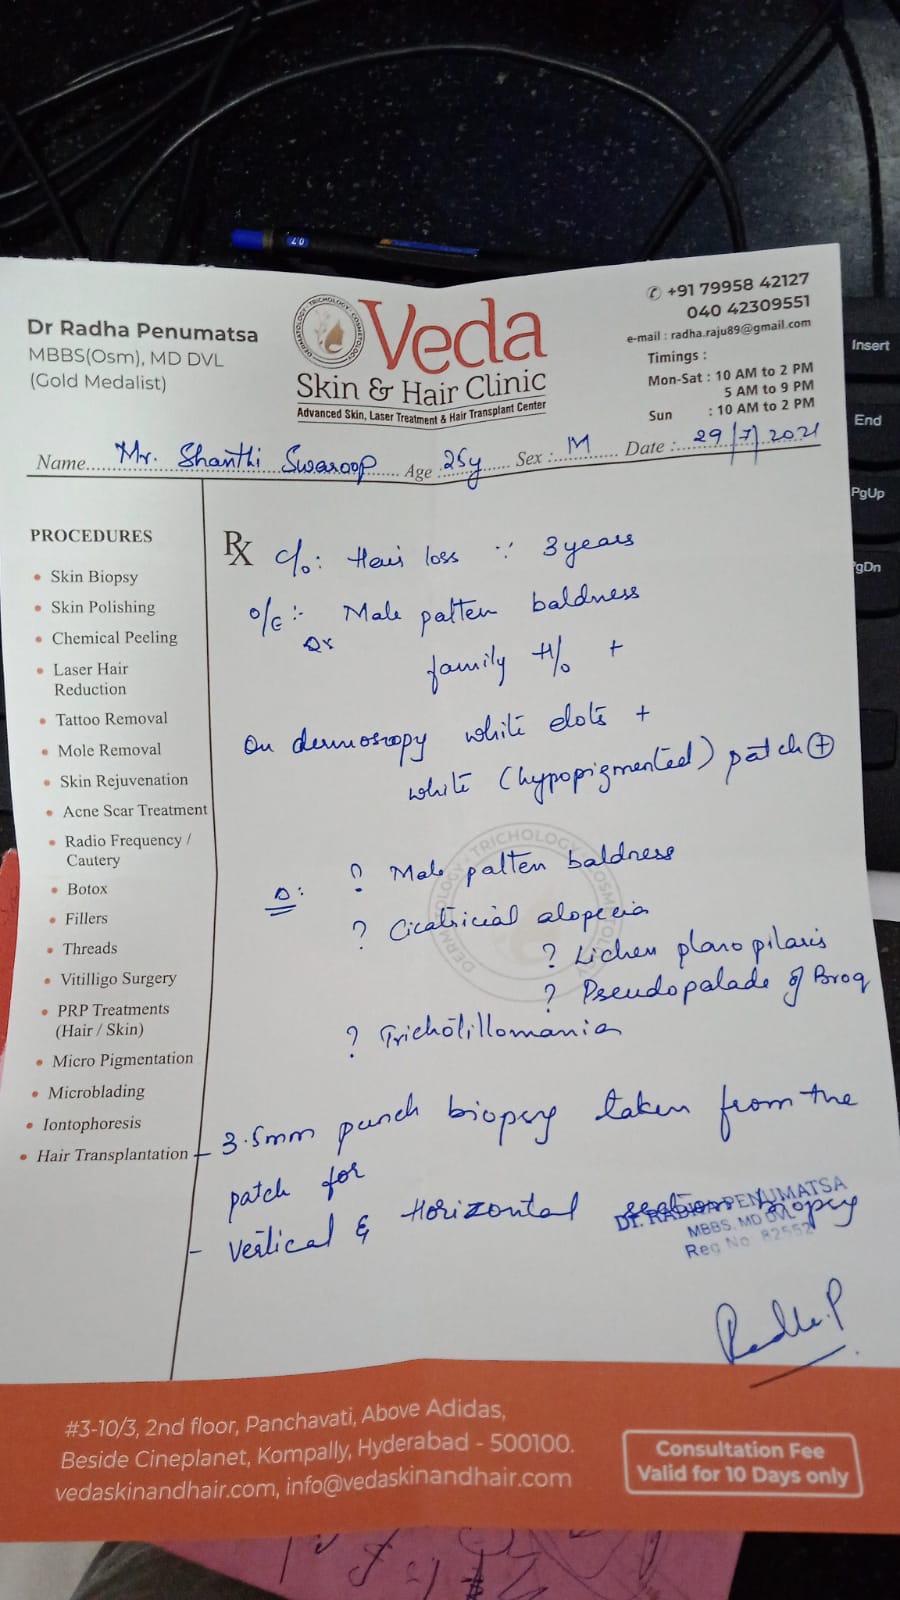 Dr Radha Penumatsa
MBBS(Osm), MD DVL
(Gold Medalist)
DERMATOLOGY • TRICHOLOGY • COSMETOLOGY
Veda
Skin & Hair Clinic
Advanced Skin, Laser Treatment & Hair Transplant Center
+91 79958 42127
040 42309551
e-mail : radha.raju89@gmail.com
Timings :
Mon-Sat : 10 AM to 2 PM
5 AM to 9 PM
Sun : 10 AM to 2 PM
Name..... Mr. Shanthi Swaroop ..... Age : 25y ..... Sex : M ..... Date : 29/7/2021
PROCEDURES
• Skin Biopsy
• Skin Polishing
• Chemical Peeling
• Laser Hair
Reduction
• Tattoo Removal
• Mole Removal
• Skin Rejuvenation
• Acne Scar Treatment
• Radio Frequency /
Cautery
• Botox
• Fillers
• Threads
• Vitilligo Surgery
• PRP Treatments
(Hair / Skin)
• Micro Pigmentation
• Microblading
• Iontophoresis
• Hair Transplantation
Rx c/o: Hair loss ∵ 3 years
o/e :- Male patten baldness
family H/o +
On dermoscopy white dots +
white (hypopigmented) patch ⊕
DERMATOLOGY • TRICHOLOGY • COSMETOLOGY
D: ? Male patten baldness
? Cicatricial alopecia
? Lichen plano pilaris
? Pseudopalade of Broq
? Tricholillomania
- 3.5mm punch biopsy taken from the
patch for
- Vertical & Horizontal section biopsy
Dr. RADHA PENUMATSA
MBBS, MD DVL
Reg No 82552
Radha.P
#3-10/3, 2nd floor, Panchavati, Above Adidas,
Beside Cineplanet, Kompally, Hyderabad - 500100.
vedaskinandhair.com, info@vedaskinandhair.com
Consultation Fee
Valid for 10 Days only
Insert
End
PgUp
PgDn
0.7